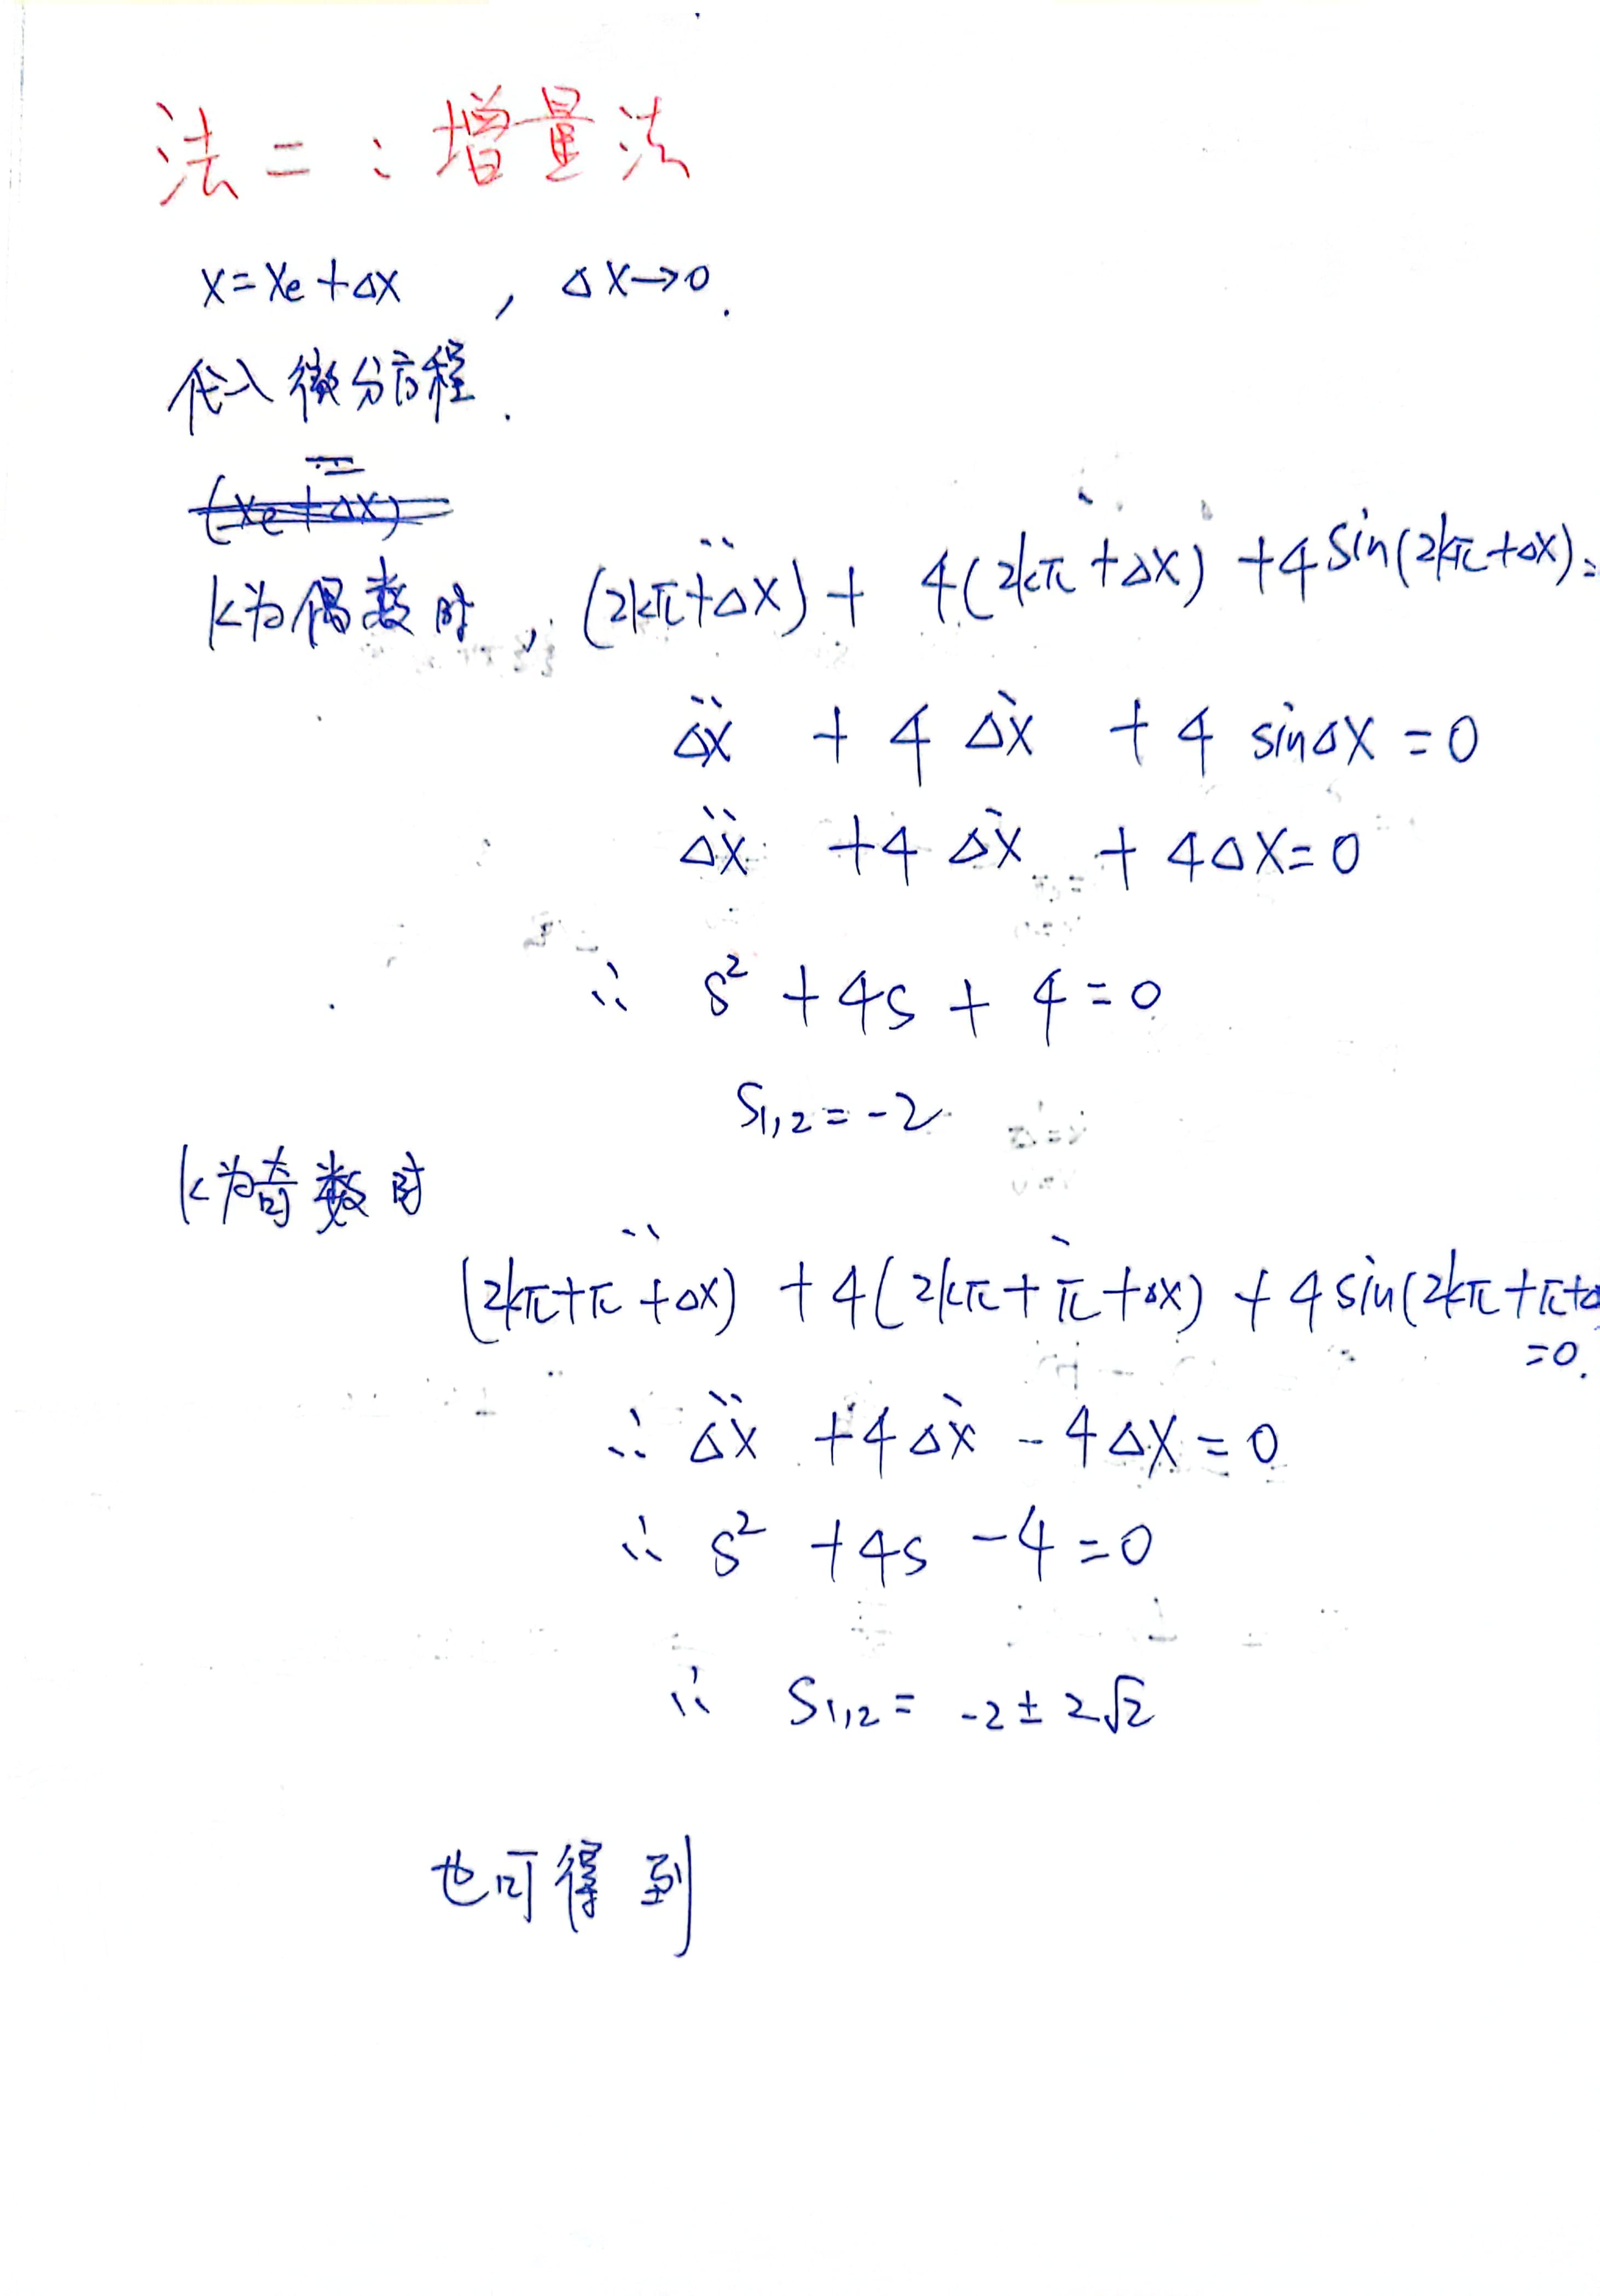 法二：增量法
x=xe+Δx , Δx→0.
代入微分方程.
(xe+Δx)
k为偶数时, (2kπ+Δx)¨+ 4(2kπ+Δx)˙+4sin(2kπ+Δx)=
Δẍ + 4Δẋ + 4 sinΔx = 0
Δẍ +4Δẋ + 4Δx=0
∴ s²+4s+4=0
S1,2=-2
k为奇数时
(2kπ+π+Δx)¨ +4(2kπ+π+Δx)˙ + 4sin(2kπ+π+Δ
=0.
∴ Δẍ +4Δẋ - 4Δx = 0
∴ s² +4s -4=0
∴ S1,2= -2±2√2
也可得到